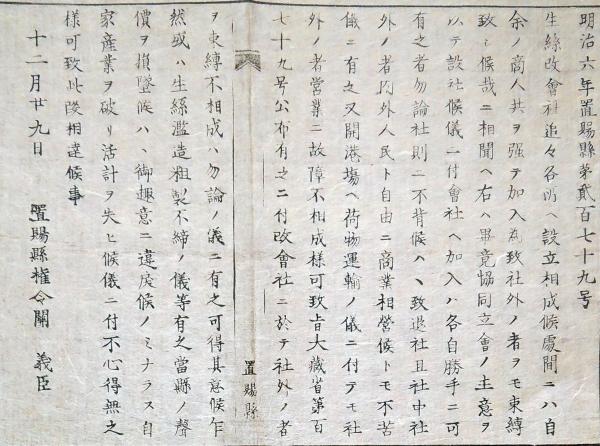 明治六年置賜縣第貳百七十九号
生絲改會社追々各所ヘ設立相成候處間ニハ自
余ノ商人共ヲ强テ加入為致社外ノ者ヲモ束縛
致シ候哉ニ相聞ヘ右ハ畢竟協同立會ノ主意ヲ
以テ設社候儀ニ付會社ヘ加入ハ各自勝手ニ可
有之者勿論社則ニ不背候ハヽ致退社且社中社
外ノ者内外人民ト自由ニ商業相營候トモ不苦
儀ニ有之又開港塲ヘ荷物運輸ノ儀ニ付テモ社
外ノ者営業ニ故障不相成様可致旨大藏省第百
七十九号公布有之ニ付改會社ニ於テ社外ノ者
置賜縣
ヲ束縛不相成ハ勿論ノ儀ニ有之可得其意候乍
然或ハ生絲濫造粗製不締ノ儀等有之當縣ノ聲
價ヲ損墜候ハヽ御趣意ニ違戻候ノミナラス自
家産業ヲ破リ活計ヲ失ヒ候儀ニ付不心得無之
様可致此段相達候事
十二月廿九日
置賜縣權令關 義臣